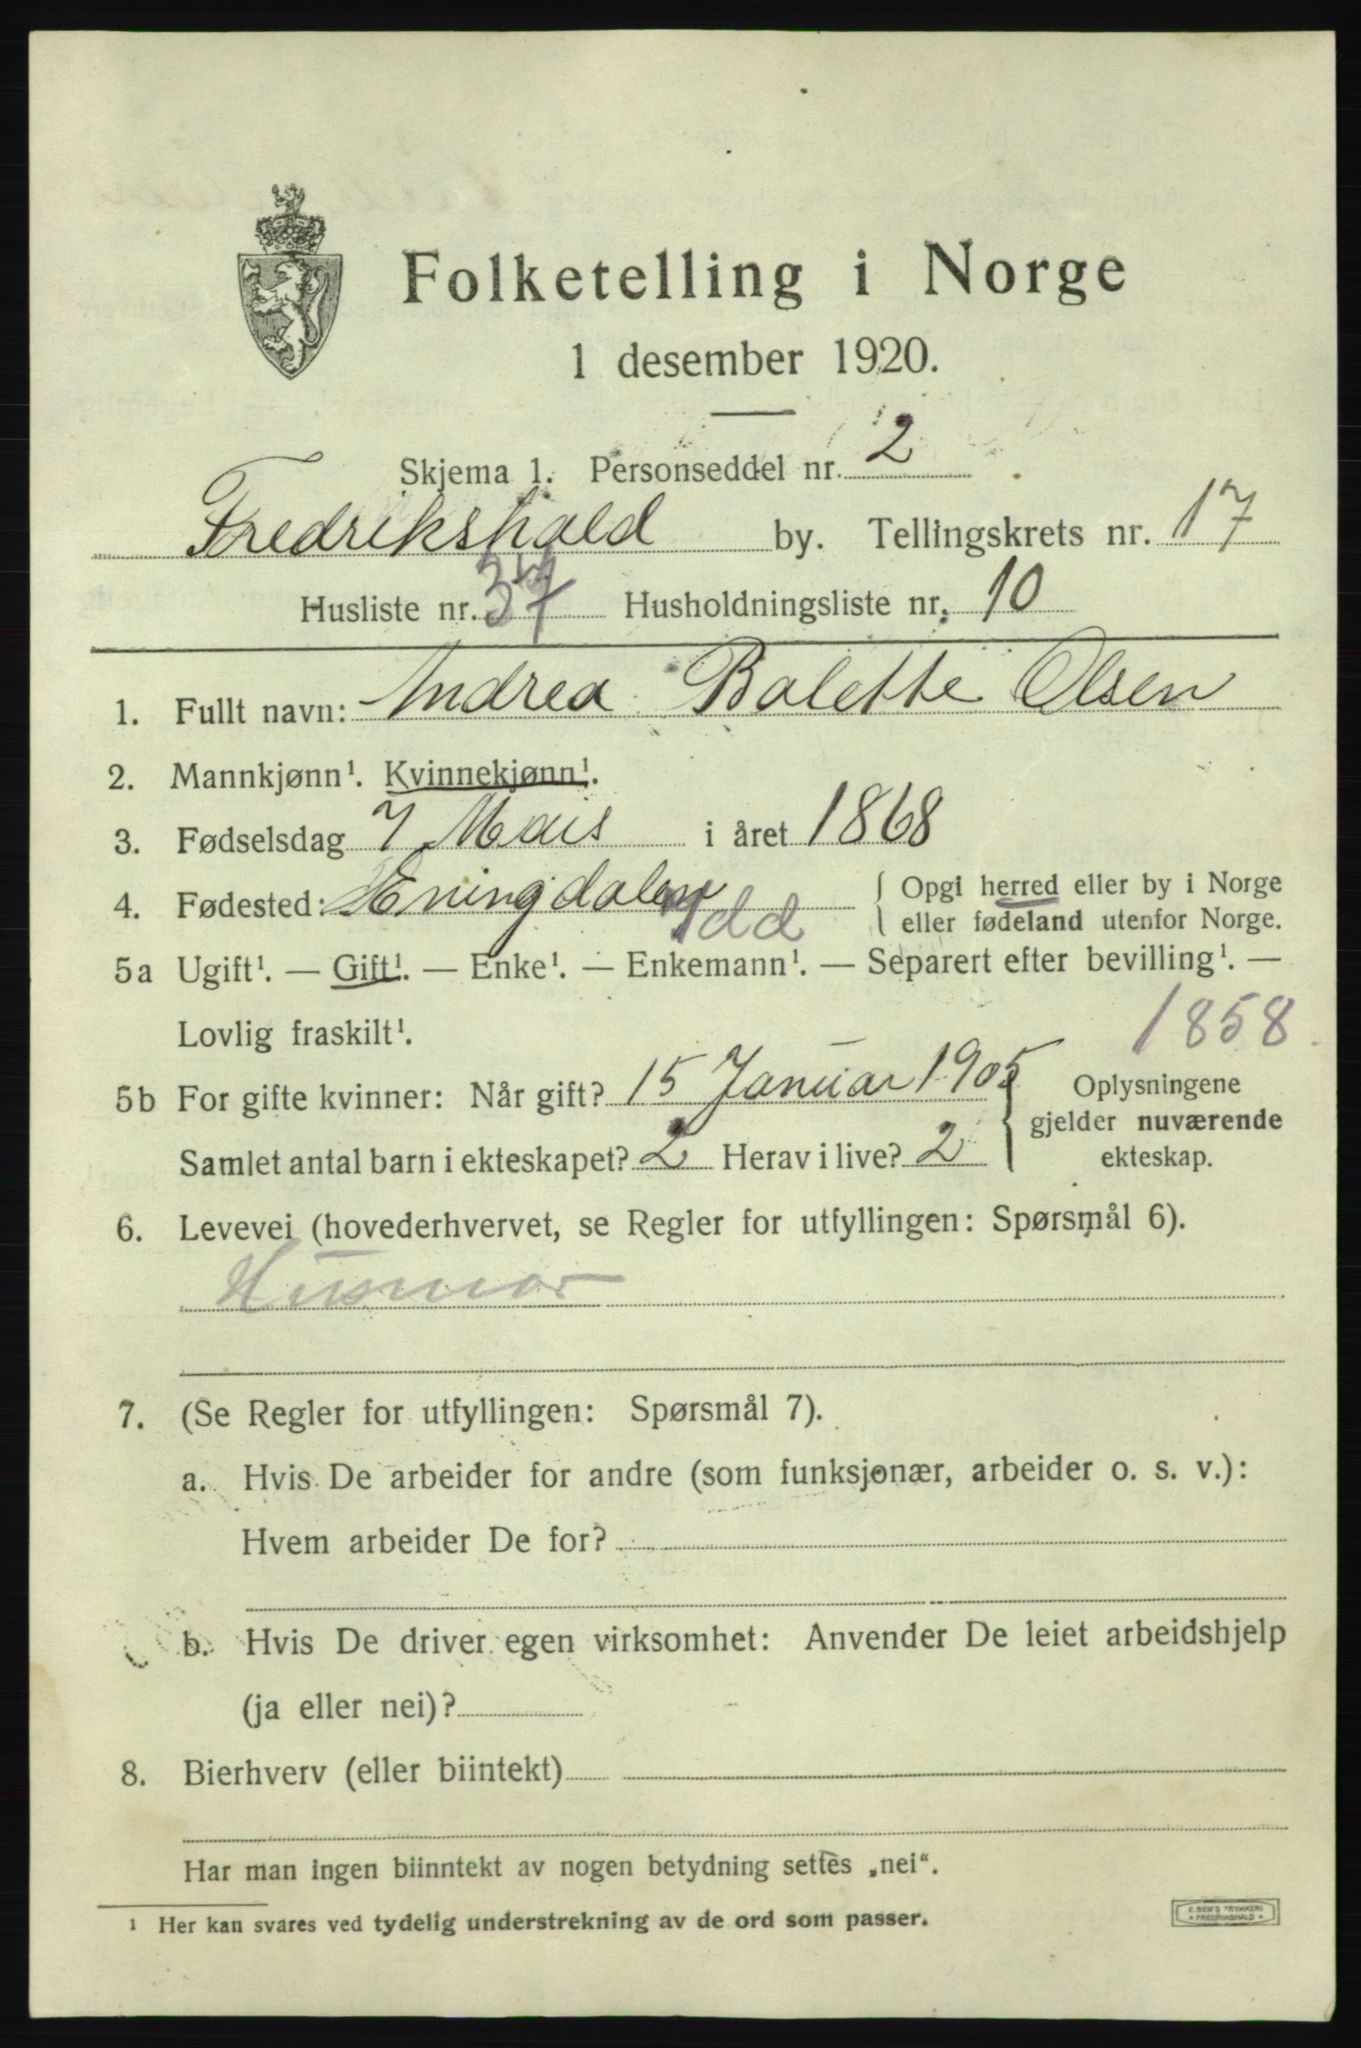 Folketelling i Norge
1 desember 1920.
Skjema 1. Personseddel nr. 2
Fredrikshald by. Tellingskrets nr. 17
Husliste nr. 37 Husholdningsliste nr. 10
1. Fullt navn: Andrea Bolette Olsen
2. Mannkjønn¹. Kvinnekjønn¹.
3. Fødselsdag 7 Mais i året 1868
4. Fødested: Eningdalen Idd { Opgi herred eller by i Norge
eller fødeland utenfor Norge.
5a Ugift¹. — Gift¹. — Enke¹. — Enkemann¹. — Separert efter bevilling¹. —
Lovlig fraskilt¹. 1858
5b For gifte kvinner: Når gift? 15 Januar 1905 { Oplysningene
gjelder nuværende
Samlet antal barn i ekteskapet? 2 Herav i live? 2 ekteskap.
6. Levevei (hovederhvervet, se Regler for utfyllingen: Spørsmål 6).
Husmor
7. (Se Regler for utfyllingen: Spørsmål 7).
a. Hvis De arbeider for andre (som funksjonær, arbeider o. s. v.):
Hvem arbeider De for?
b. Hvis De driver egen virksomhet: Anvender De leiet arbeidshjelp
(ja eller nei)?
8. Bierhverv (eller biintekt)
Har man ingen biinntekt av nogen betydning settes „nei“.
¹ Her kan svares ved tydelig understrekning av de ord som passer.
TRYKKERI
FREDRIKSHALD